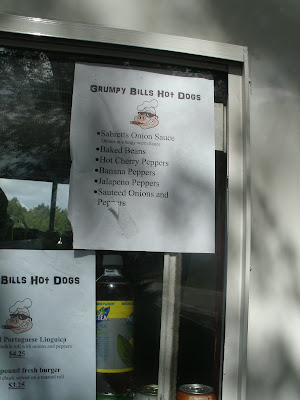 Grumpy Bills Hot Dogs
•Sabrett's Onion Sauce
•Baked Beans
•Hot Cherry Peppers
•Banana Peppers
•Jalapeno Peppers
•Sauteed Onions and
Peppers
Bills Hot Dogs
Portuguese Linguica
roll with onions and peppers
$4.25
pound fresh burger
on a roll
$3.25